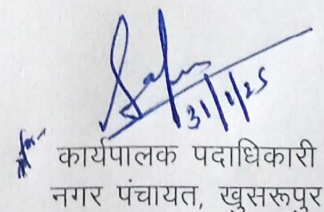 31/1/25
कार्यपालक पदाधिकारी
नगर पंचायत, खुसरूपुर